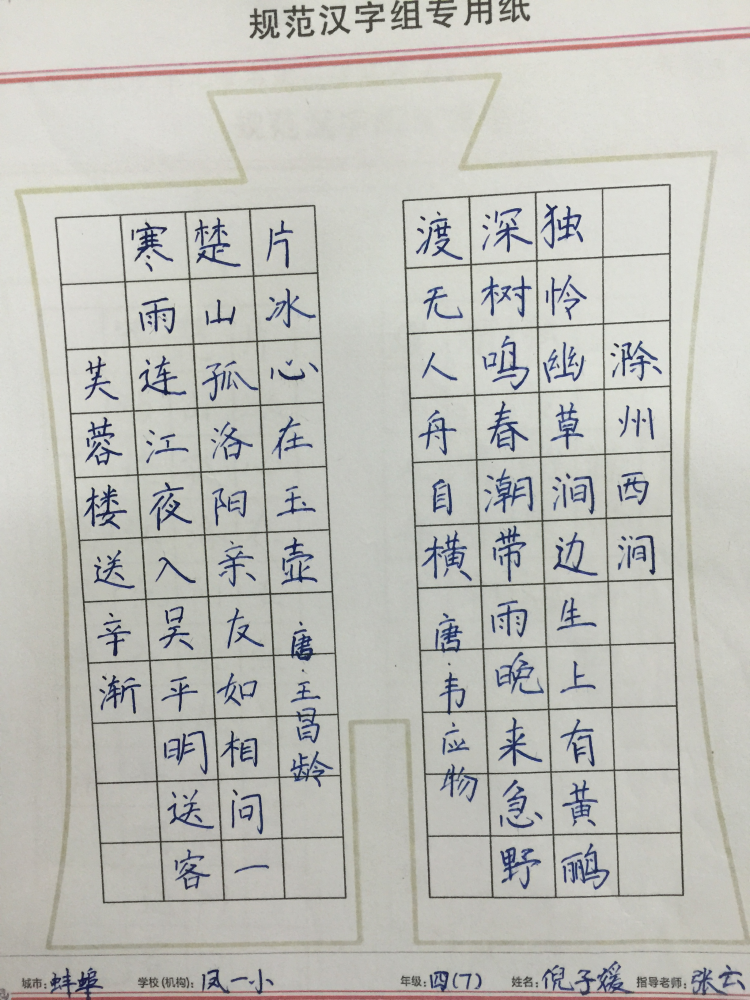 规范汉字组专用纸
芙蓉楼送辛渐
寒雨连江夜入吴平明送客
楚山孤洛阳亲友如相问一
片冰心在玉壶唐·王昌龄
滁州西涧
独怜幽草涧边生上有黄鹂
深树鸣春潮带雨晚来急野
渡无人舟自横唐·韦应物
城市：蚌埠 学校(机构)：凤一小 年级：四(7) 姓名：倪子媛 指导老师：张云